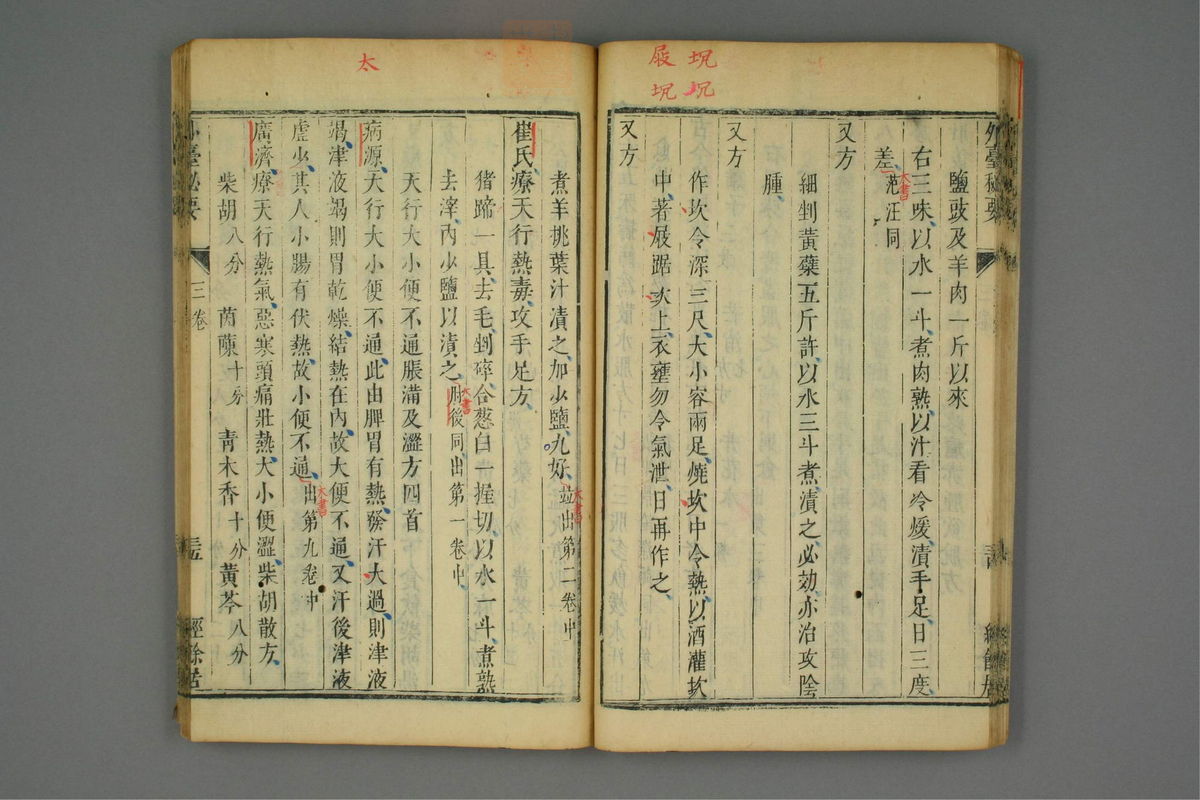 屐 坭
坭 坭
外臺秘要
鹽豉及羊肉一斤以來
右三味以水一斗煮肉熟以汁看冷煖漬手足日三度
差范汪同
大書
又方
細剉黃蘗五斤許以水三斗煮漬之必効亦治攻陰
腫
又方
作坎令深三尺大小容兩足燒坎中令熱以酒灌坎
中著屐踞坎上衣壅勿令氣泄日再作之
又方
太
煮羊桃葉汁漬之加少鹽尤好並出第二卷中
大書
崔氏療天行熱毒攻手足方
猪蹄一具去毛剉碎合葱白一握切以水一斗煮熟
去滓內少鹽以漬之肘後同出第一卷中
大書
天行大小便不通脹滿及澀方四首
病源天行大小便不通此由脾胃有熱發汗太過則津液
竭津液竭則胃乾燥結熱在內故大便不通又汗後津液
虛少其人小腸有伏熱故小便不通出第九卷中
大書
廣濟療天行熱氣惡寒頭痛壯熱大小便澀柴胡散方
柴胡八分 茵蔯十分 青木香十分 黃芩八分
外臺祕要 三卷 經餘居